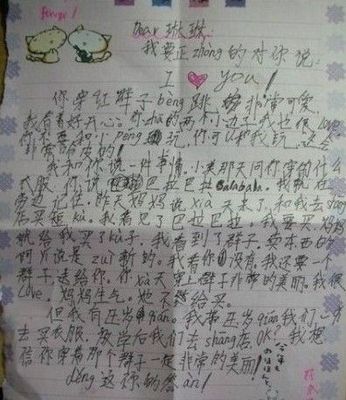 Dear 琳琳:
我要正zhòng的对你说:
I ♥ You!
你穿红裙子bèng跳 非常可爱,
我看着好开心。你zhā的两个小边子我也love,
你不要和小péng 玩,你可以和我玩,这会
非常
我和你说一件事情,小美那天问你穿的什么
衣服,你说 巴拉巴拉balabala。我就在
旁边记住。昨天妈妈说xià天来了,和我去shāng
店买短kù。我看见了巴拉巴拉。我要买妈妈
就给我买了kù子。我看到了群子。卖东西的
阿yí说是zuì新的。我看你没有,我还要一个
群子送给你。你xià天穿上群子非常的美丽,我很
Love!妈妈生气。她不给买。
但我有压岁qián。我带压岁qián我们一
去买衣服,放学后我们去shāng店.OK?我想
信你穿着那个群子一定非常的美丽!
děng这你的答àn!